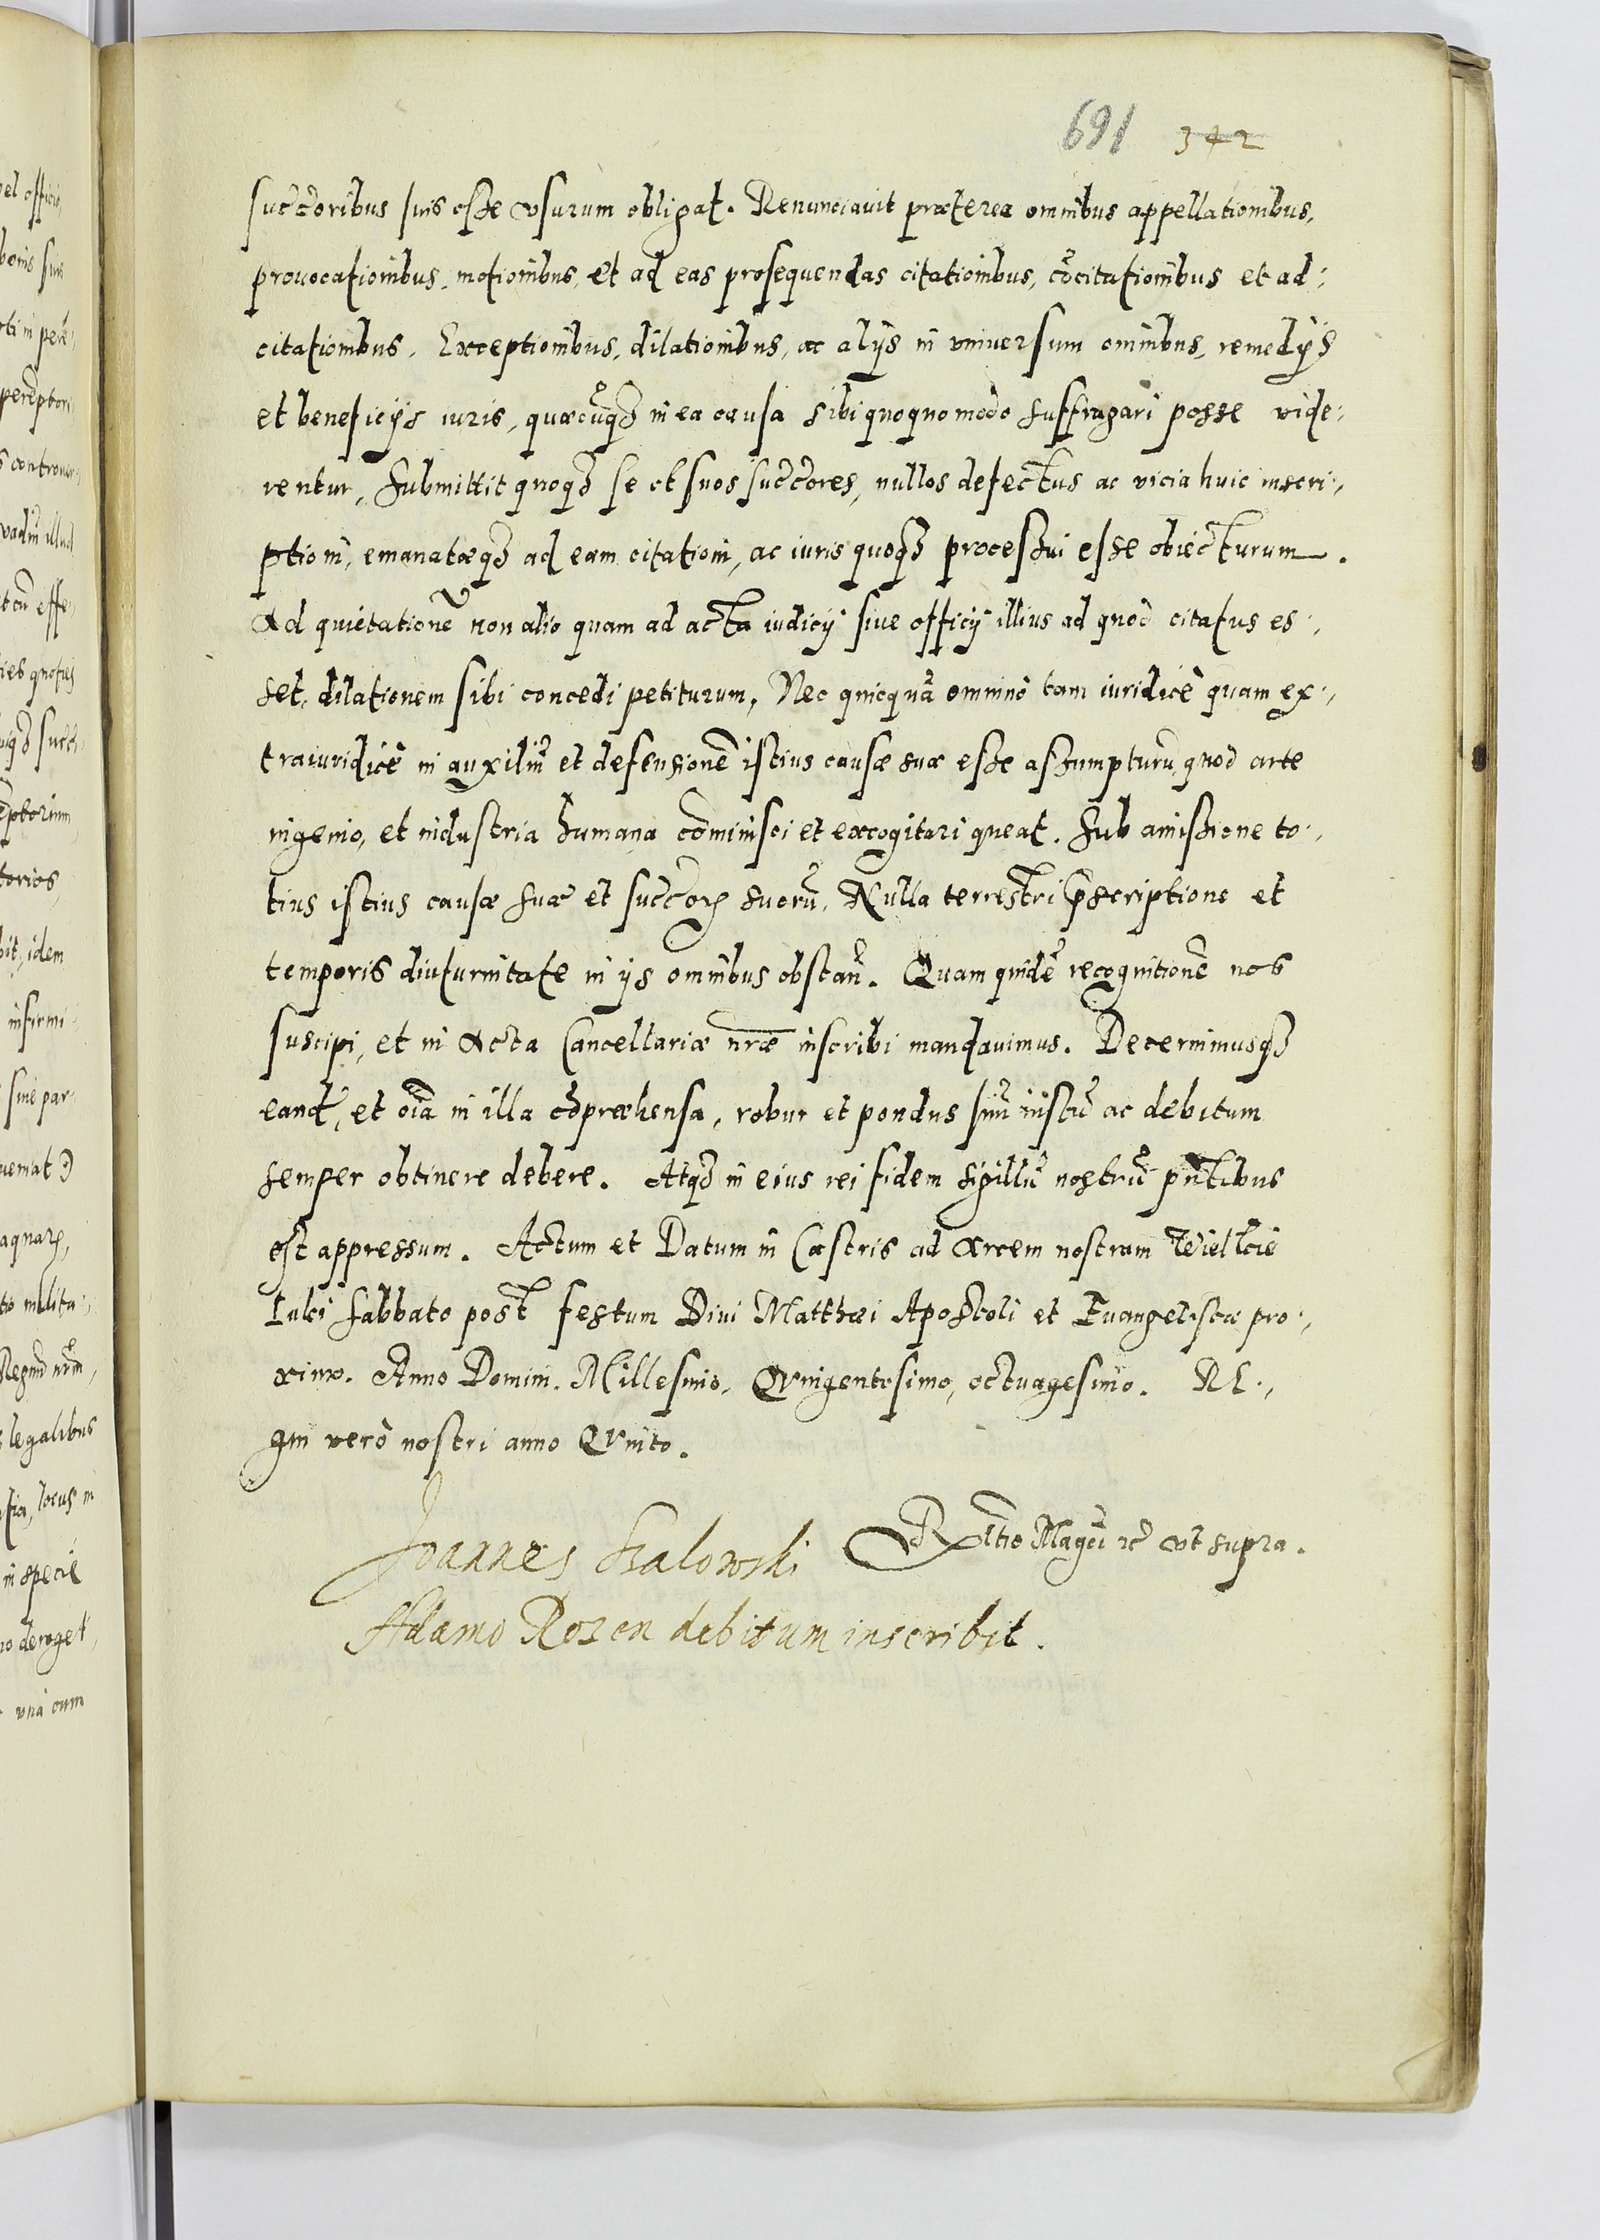 691 342
succoribus suis esse vsurum obligat. Renunciauit præterea omnibus appellationibus,
prouocationibus, motionibus, et ad eas prosequendas citationibus, cõcitationibus et ad:,
citationibus. Exceptionibus, dilationibus, ac alÿs in vniuersum omnibus, remedÿs
et beneficÿs iuris, quæcũq3 in ea causa sibi quoquo modo suffragari posse vide:,
rentur, Submittit quoq3 se et suos succores, nullos defectus ac vicia huic inscri:,
ptioni, emanatæq3 ad eam citationi, ac iuris quoq3 processui esse obiecturum.
Ad quietationẽ non alio quam ad acta iudicÿ siue officÿ illius ad quod citatus es:,
set, dilationem sibi concedi petiturum, Nec quicquã omnino tam iuridicè quam ex:,
traiuridicè in auxiliũ et defensionẽ istius causæ suæ esse assumpturũ, quod arte
ingenio, et industria humana cõminisci et excogitari queat. Sub amissione to:,
tius istius causæ suæ et succoꝝ suorũ, Nulla terrestri p̃scriptione et
temporis diuturnitate in ÿs omnibus obstañ. Quam quidẽ recognitionẽ nos
suscipi, et in Acta Cancellariæ nr̃æ inscribi mandauimus. Decernimusq3
eand̃, et oĩa in illa cõpræhensa, robur et pondus suũ iustũ ac debitum
semper obtinere debere. Atq3 in eius rei fidem sigillũ nostrũ pñtibus
est appressum. Actum et Datum in Castris ad Arcem nostram Wielkie
Luki Sabbato post festum Diui Matthæi Apostoli et Euangelistæ pro:,
ximo. Anno Domini. Millesimo, Quingentesimo, octuagesimo. RE:,
gni verò nostri anno Quinto.
Rl̃tio Mag̃ci etc̃ vt supra.
Joannes Skalowski
Adamo Rozen debitum inscribit.